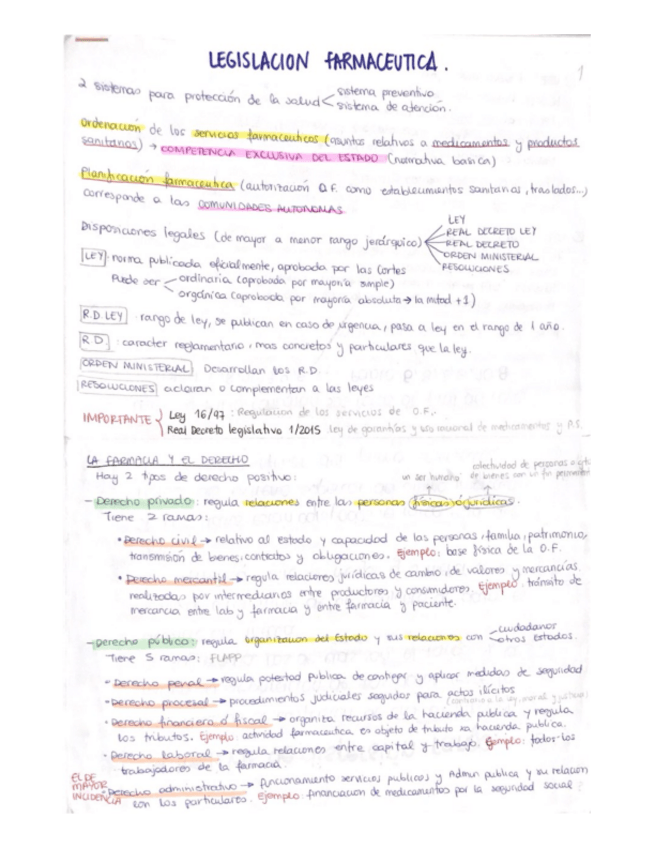 LEGISLACION FARMACEUTICA.
1
2 sistemas para protección de la salud
sistema preventivo
sistema de atención.
Ordenación de los servicios farmaceuticos (asuntos relativos a medicamentos y productos
sanitarios) → COMPETENCIA EXCLUSIVA DEL ESTADO (normativa basica)
Planificación farmaceutica (autorización O.F. como establecimientos sanitarios, traslados...)
corresponde a las COMUNIDADES AUTONOMAS
Disposiciones legales (de mayor a menor rango jerárquico)
LEY
REAL DECRETO LEY
REAL DECRETO
ORDEN MINISTERIAL
RESOLUCIONES
LEY norma publicada oficialmente, aprobada por las Cortes
Puede ser
ordinaria (aprobada por mayoría simple)
orgánica (aprobada por mayoría absoluta → la mitad +1)
R.D.LEY rango de ley, se publican en caso de urgencia, pasa a ley en el rango de 1 año.
R D caracter reglamentario, mas concretos y particulares que la ley.
ORDEN MINISTERIAL Desarrollan los R.D.
RESOLUCIONES aclaran o complementan a las leyes
IMPORTANTE
Ley 16/97 : Regulación de los servicios de O.F.
Real Decreto legislativo 1/2015 Ley de garantías y uso racional de medicamentos y P.S.
LA FARMACIA Y EL DERECHO
Hay 2 tipos de derecho positivo:
un ser humano
colectividad de personas o
de bienes con un fin
- Derecho privado: regula relaciones entre las personas físicas ó jurídicas.
Tiene 2 ramas:
• Derecho civil → relativo al estado y capacidad de las personas, familia, patrimonio,
transmisión de bienes, contratos y obligaciones. Ejemplo: base física de la O.F.
• Derecho mercantil → regula relaciones jurídicas de cambio, de valores y mercancías
realizadas por intermediarios entre productores y consumidores. Ejemplo: tránsito de
mercancia entre lab y farmacia y entre farmacia y paciente.
- Derecho público: regula organización del Estado y sus relaciones con
ciudadanos
otros estados.
Tiene 5 ramas: FLAPP
- Derecho penal → regula potestad publica de castigar y aplicar medidas de seguridad
- Derecho procesal → procedimientos judiciales seguidos para actos ilícitos
(contrario a la ley, moral y justicia)
• Derecho financiero ó fiscal → organiza recursos de la hacienda publica y regula
los tributos. Ejemplo: actividad farmaceutica es objeto de tributo xa hacienda publica.
• Derecho laboral → regula relaciones entre capital y trabajo. Ejemplo: todos los
trabajadores de la farmacia.
EL DE
MAYOR
INCIDENCIA
Derecho administrativo → funcionamiento servicios publicos y Admin publica y su relacion
con los particulares. Ejemplo: financiacion de medicamentos por la seguridad social.